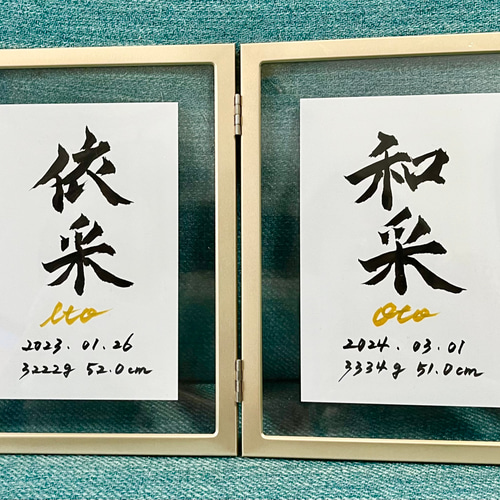 依采
Ito
2023.01.26
3222g 52.0cm
和采
Oto
2024.03.01
3334g 51.0cm